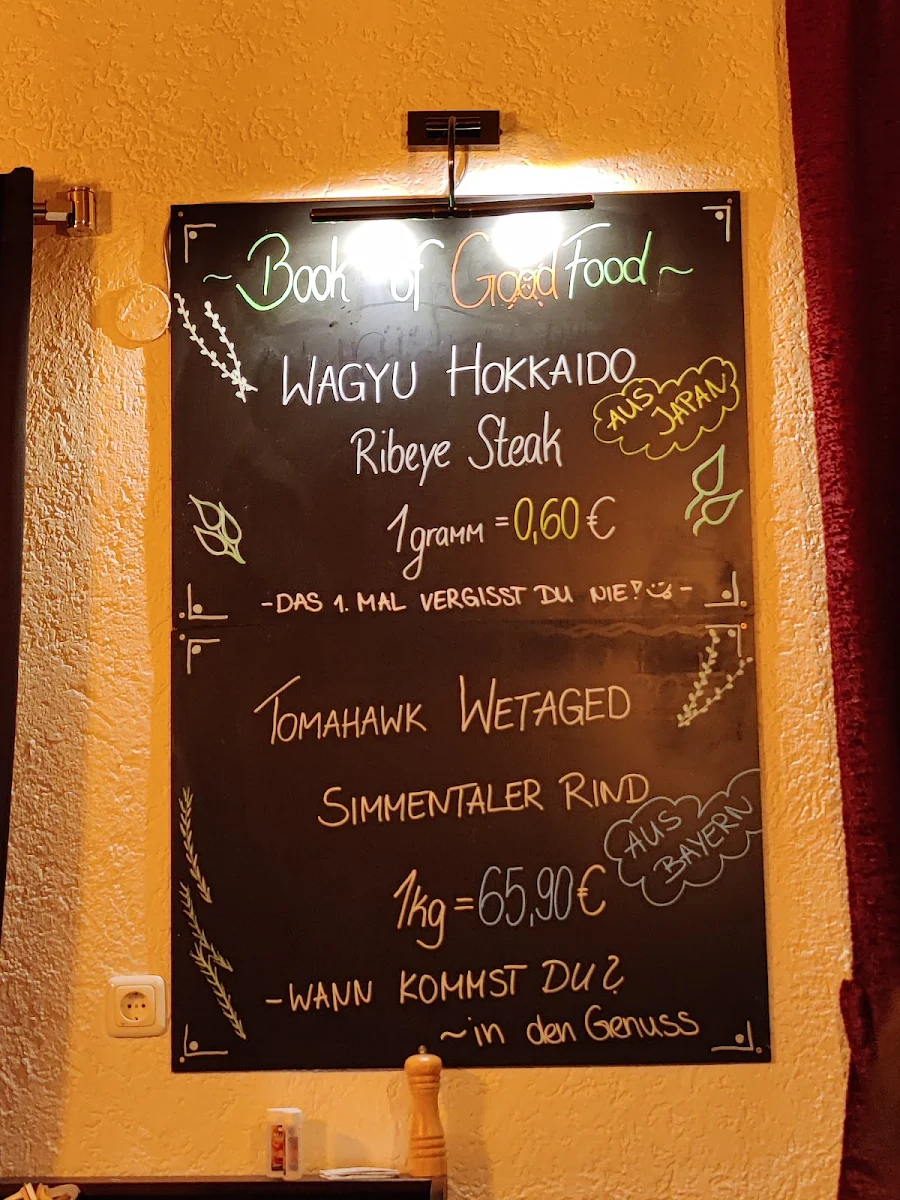 ~ Book of Good Food ~
WAGYU HOKKAIDO
AUS JAPAN
Ribeye Steak
1 gramm = 0,60 €
- DAS 1. MAL VERGISST DU NIE! -
TOMAHAWK WETAGED
SIMMENTALER RIND
AUS BAYERN
1kg = 65,90 €
- WANN KOMMST DU?
~ in den Genuss